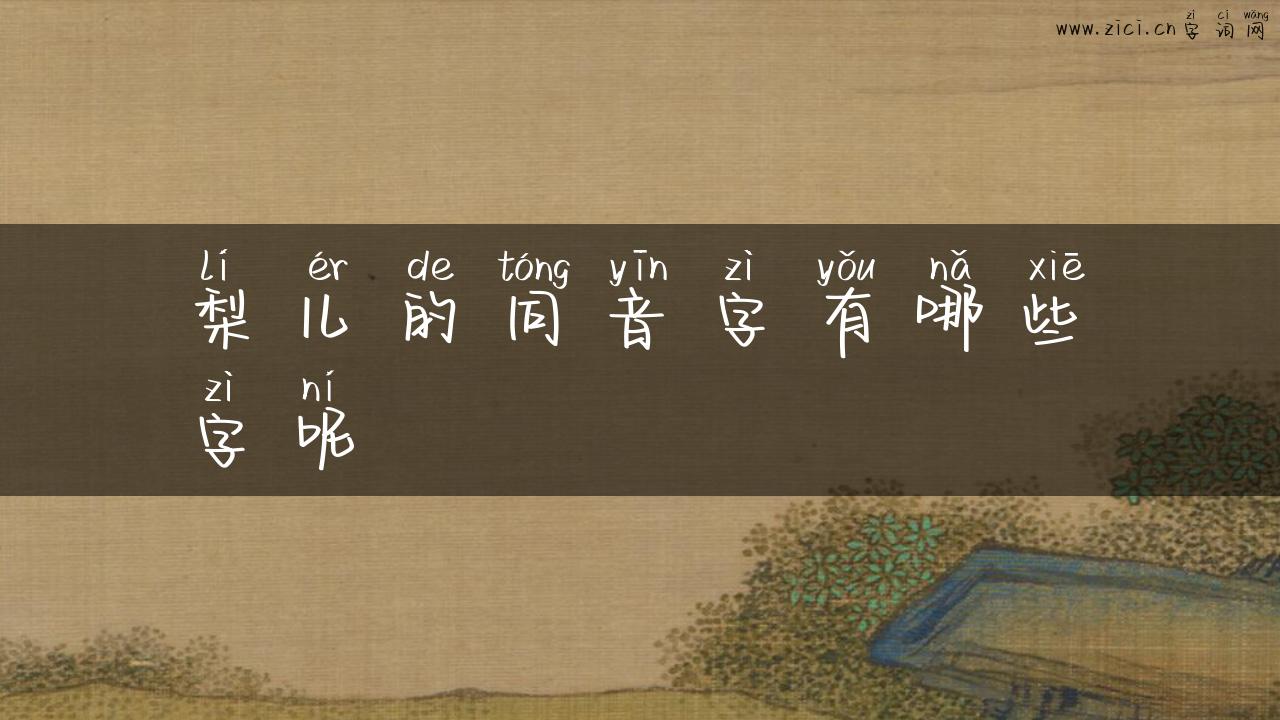 zì cí wǎng
www.zici.cn 字词网
lí ér de tóng yīn zì yǒu nǎ xiē
梨儿的同音字有哪些
zì ní
字呢